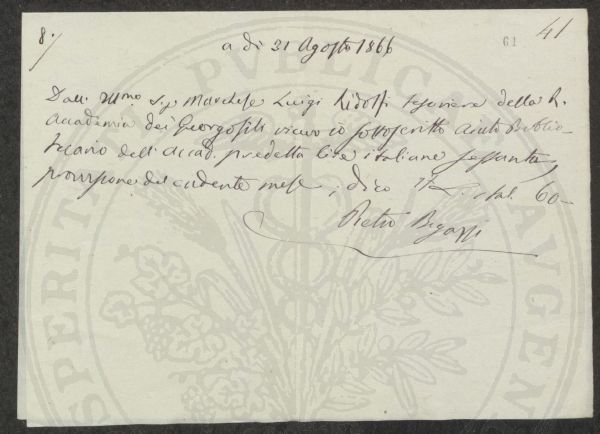 8./
41
61
a dì 31 Agosto 1866
Dall' Ill.mo S.r Marchese Luigi Ridolfi Tesoriere della R.
Accademia dei Georgofili ricevo io sottoscritto Aiuto Biblio-
tecario dell' Accad. predetta lire italiane sessanta,
provvisione del cadente mese; dico ital. 60-
Pietro Bigazzi
PROSPERITATI PUBLICAE AUGENDAE